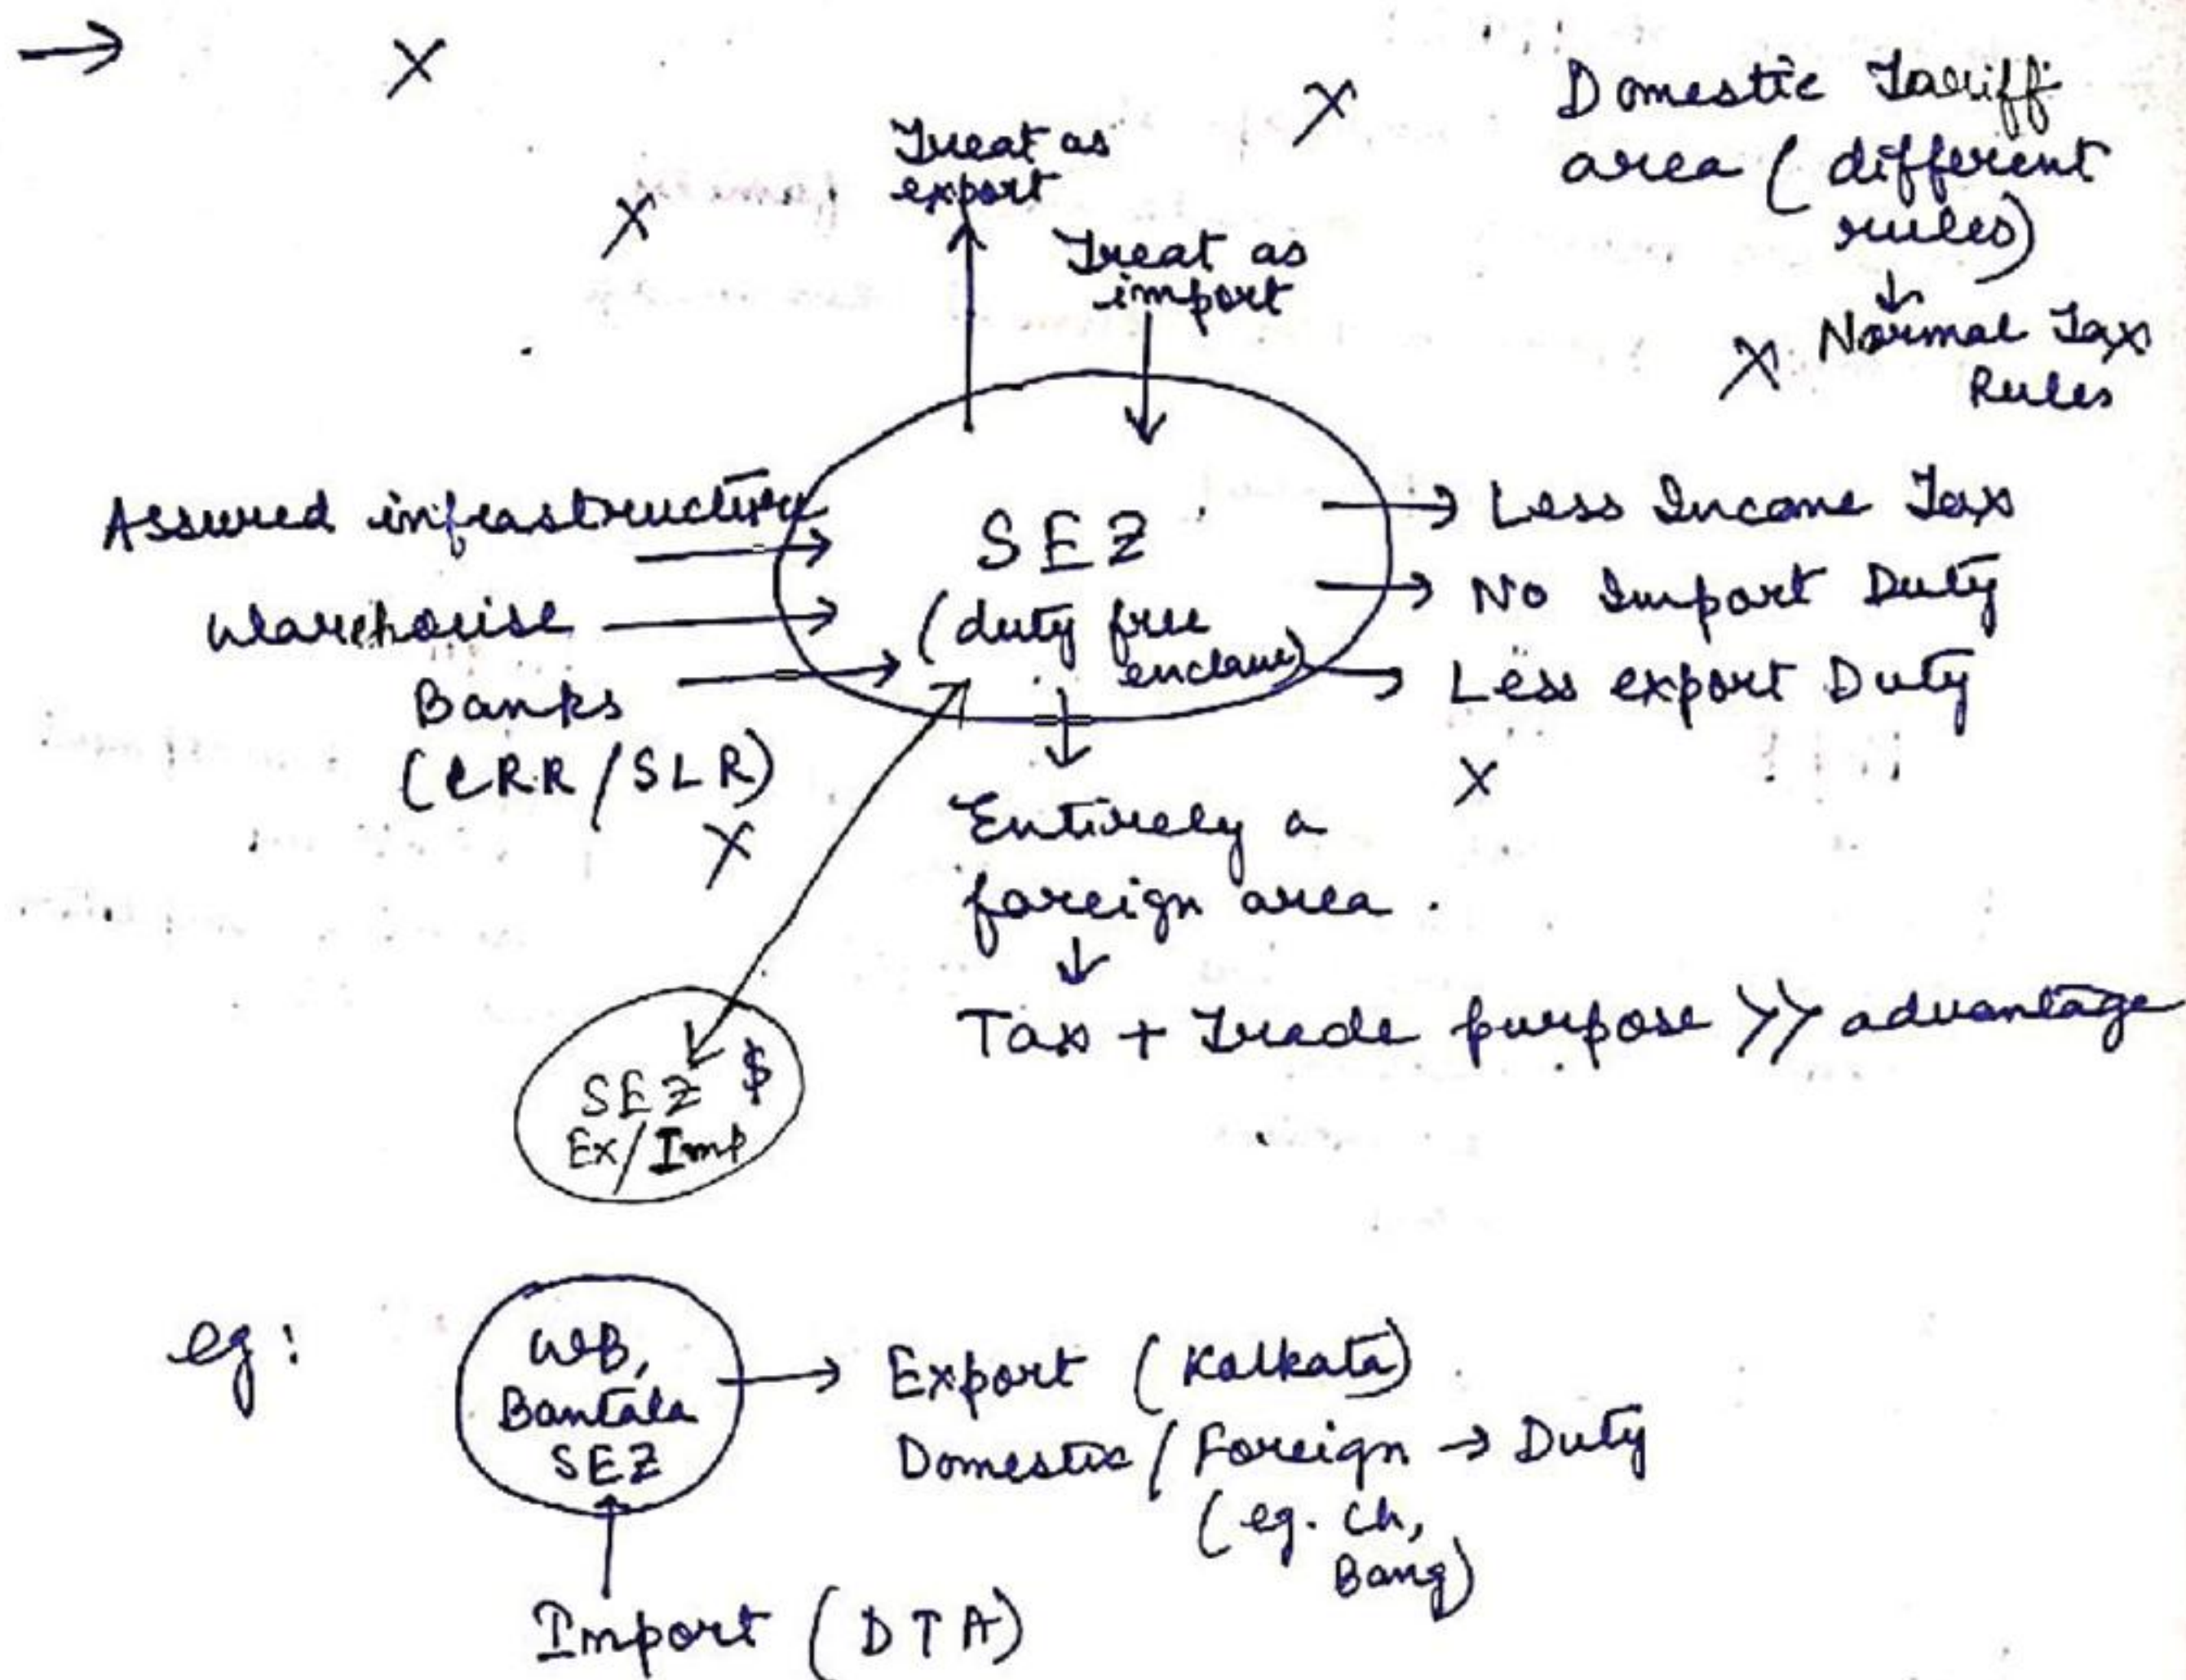 → X
X
X
Treat as
export
Treat as
import
Domestic Tariff
area (different
rules)
↓
X Normal Tax
Rules
Assured infrastructure
Warehouse
Banks
(CRR/SLR)
X
SEZ
(duty free
enclave)
→ Less Income Tax
→ No Import Duty
→ Less export Duty
X
↓
Entirely a
foreign area.
↓
Tax + Trade purpose >> advantage
SEZ $
Ex/Imp
eg:
WB,
Bantala
SEZ
→ Export (Kolkata)
Domestic/Foreign → Duty
(eg. Ch,
Bang)
Import (DTA)